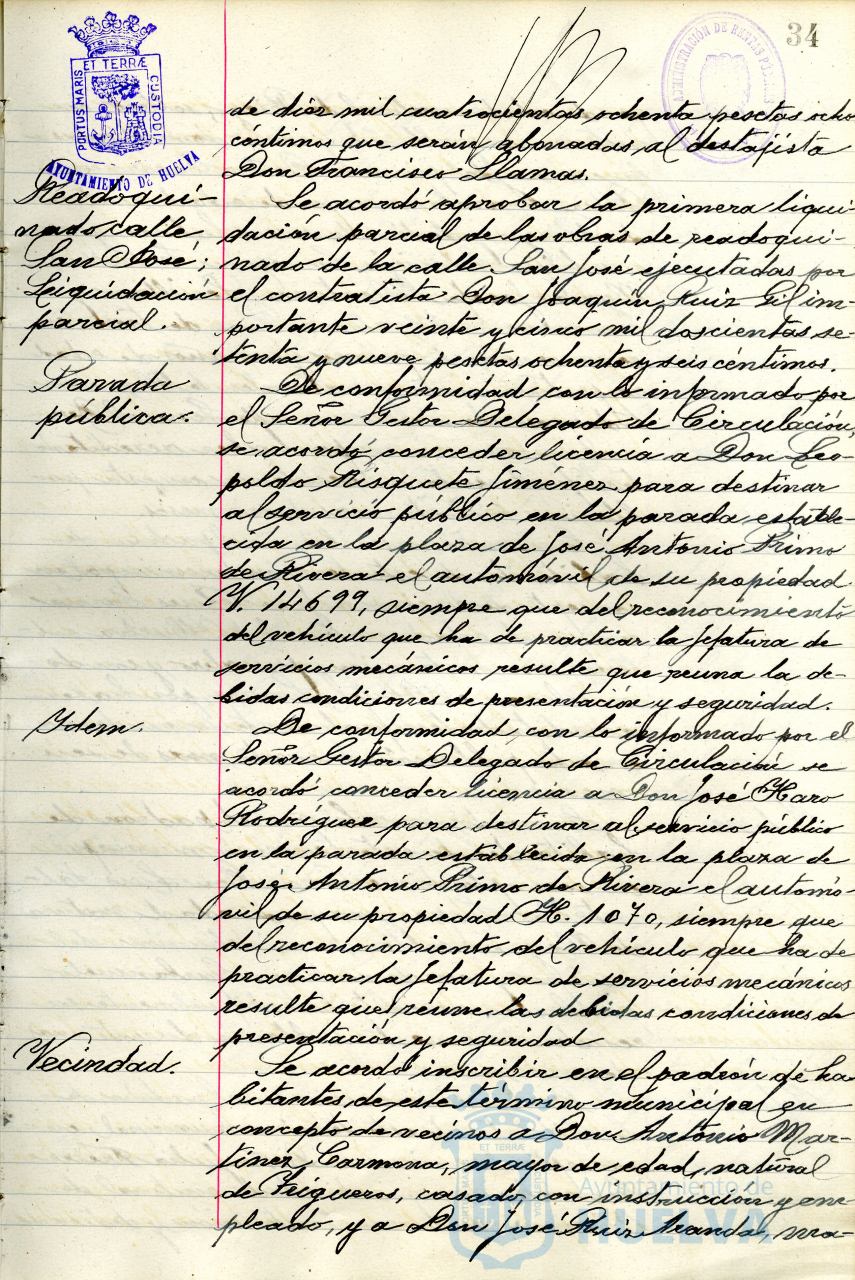 34
PORTUS MARIS ET TERRÆ CUSTODIA
AYUNTAMIENTO DE HUELVA
ADMINISTRACIÓN DE RENTAS PÚBLICAS
de diez mil cuatrocientas ochenta pesetas ocho
céntimos que serán abonadas al destajista
Don Francisco Llamas.
Readoqui-
nado calle
San José;
Liquidación
parcial.
Se acordó aprobar la primera liqui-
dación parcial de las obras de readoqui-
nado de la calle San José ejecutadas por
el contratista Don Joaquín Ruiz Gil im-
portante veinte y cinco mil doscientas se-
tenta y nueve pesetas ochenta y seis céntimos.
Parada
pública.
De conformidad con lo informado por
el Señor Gestor Delegado de Circulación,
se acordó conceder licencia a Don Leo-
poldo Risquete Jiménez para destinar
al servicio público en la parada estable-
cida en la plaza de José Antonio Primo
de Rivera el automóvil de su propiedad
V. 14699, siempre que del reconocimiento
del vehículo que ha de practicar la jefatura de
servicios mecánicos resulte que reuna la de-
bidas condiciones de presentación y seguridad.
Ydem.
De conformidad con lo informado por el
Señor Gestor Delegado de Circulación se
acordó conceder licencia a Don José Haro
Rodríguez para destinar al servicio público
en la parada establecida en la plaza de
José Antonio Primo de Rivera el automó-
vil de su propiedad H. 1070, siempre que
del reconocimiento del vehículo que ha de
practicar la jefatura de servicios mecánicos
resulte que reune las debidas condiciones de
presentación y seguridad
Vecindad.
Se acordó inscribir en el padrón de ha-
bitantes de este término municipal en
concepto de vecinos a Don Antonio Mar-
tinez Carmona, mayor de edad, natural
de Trigueros, casado, con instrucción y em-
pleado, y a Don José Ruiz Aranda, ma-
Ayuntamiento de
HUELVA